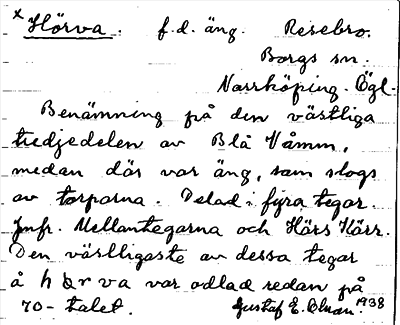 x Hörva. f.d. äng. Resebro.
Borgs sn.
Norrköping. Ögl.
Benämning på den västliga
tredjedelen av Blå Våmm,
medan där var äng, som slogs
av torparna. Delad i fyra tegar.
Jmfr. Mellantegarna och Härs Kärr.
Den västligaste av dessa tegar
å hörva var odlad redan på
70-talet. Gustaf E. Olsson. 1938